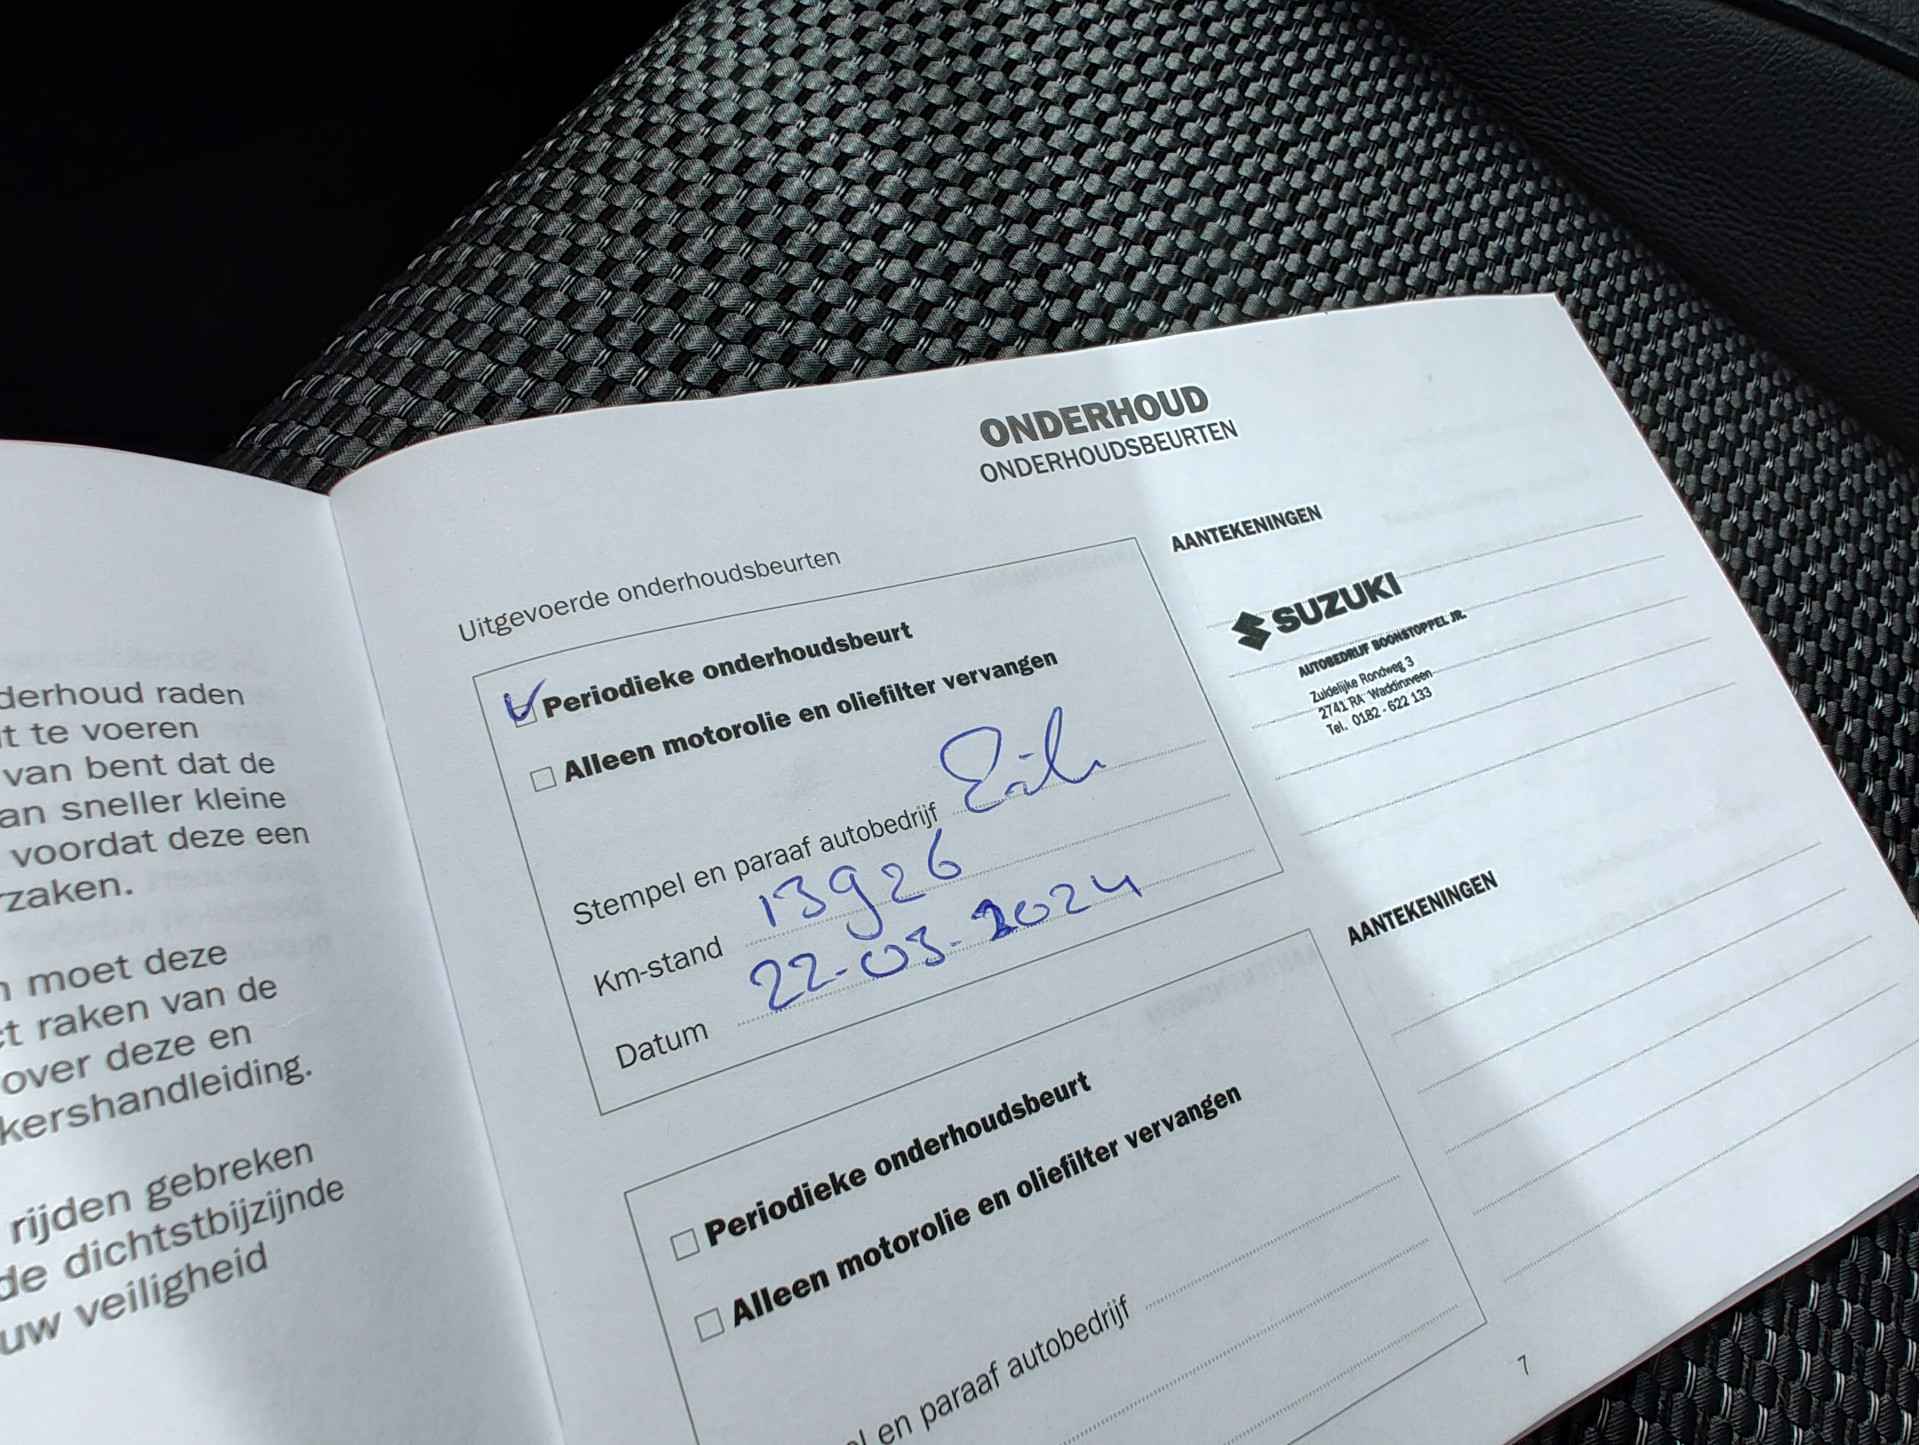 derhoud raden
it te voeren
van bent dat de
an sneller kleine
voordat deze een
rzaken.
moet deze
ct raken van de
over deze en
kershandleiding.
rijden gebreken
de dichtstbijzijnde
uw veiligheid
ONDERHOUD
ONDERHOUDSBEURTEN
Uitgevoerde onderhoudsbeurten
Periodieke onderhoudsbeurt
Alleen motorolie en oliefilter vervangen
Stempel en paraaf autobedrijf
Km-stand 13926
Datum 22-03-2024
AANTEKENINGEN
SUZUKI
AUTOBEDRIJF BOONSTOPPEL JR.
Zuidelijke Rondweg 3
2741 RA Waddinxveen
Tel. 0182 - 622 133
Periodieke onderhoudsbeurt
Alleen motorolie en oliefilter vervangen
el en paraaf autobedrijf
AANTEKENINGEN
7